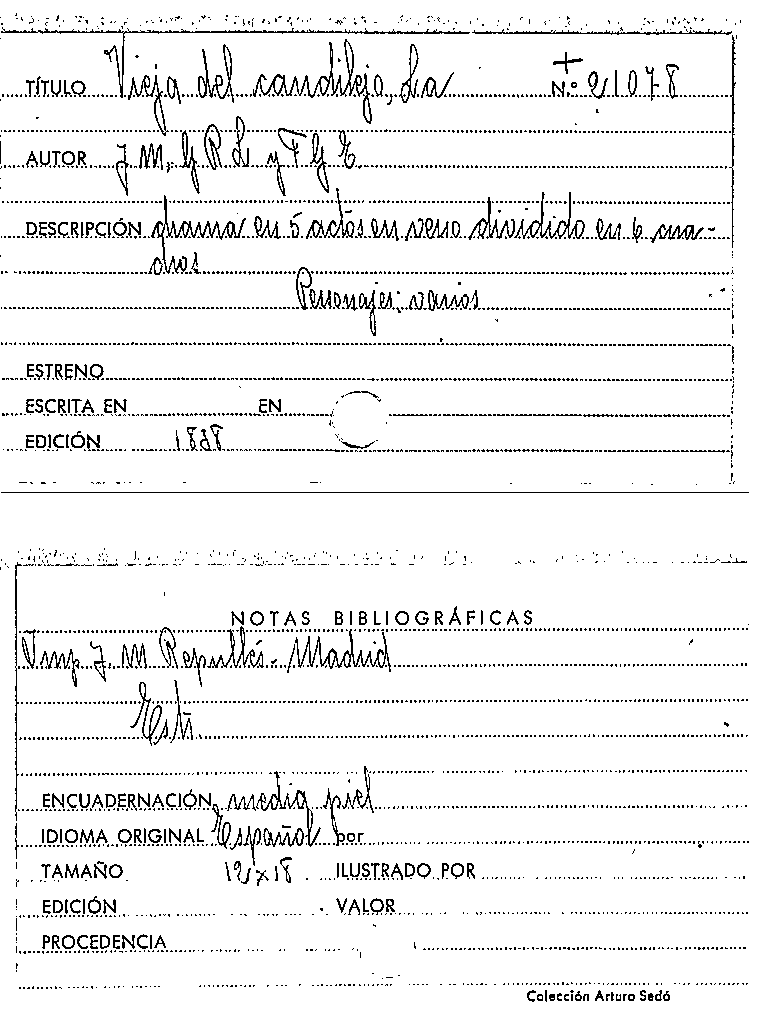 TÍTULO Vieja del candilejo, La N.º 21078
AUTOR J M, G R L y F G E.
DESCRIPCIÓN drama en 5 actos en verso dividido en 6 cua-
dros
Personajes: varios
ESTRENO
ESCRITA EN EN
EDICIÓN 1838
NOTAS BIBLIOGRÁFICAS
Imp. J. M Repullés.- Madrid
ENCUADERNACIÓN media piel
IDIOMA ORIGINAL Español por
TAMAÑO 12x18 ILUSTRADO POR
EDICIÓN VALOR
PROCEDENCIA
Colección Arturo Sedó